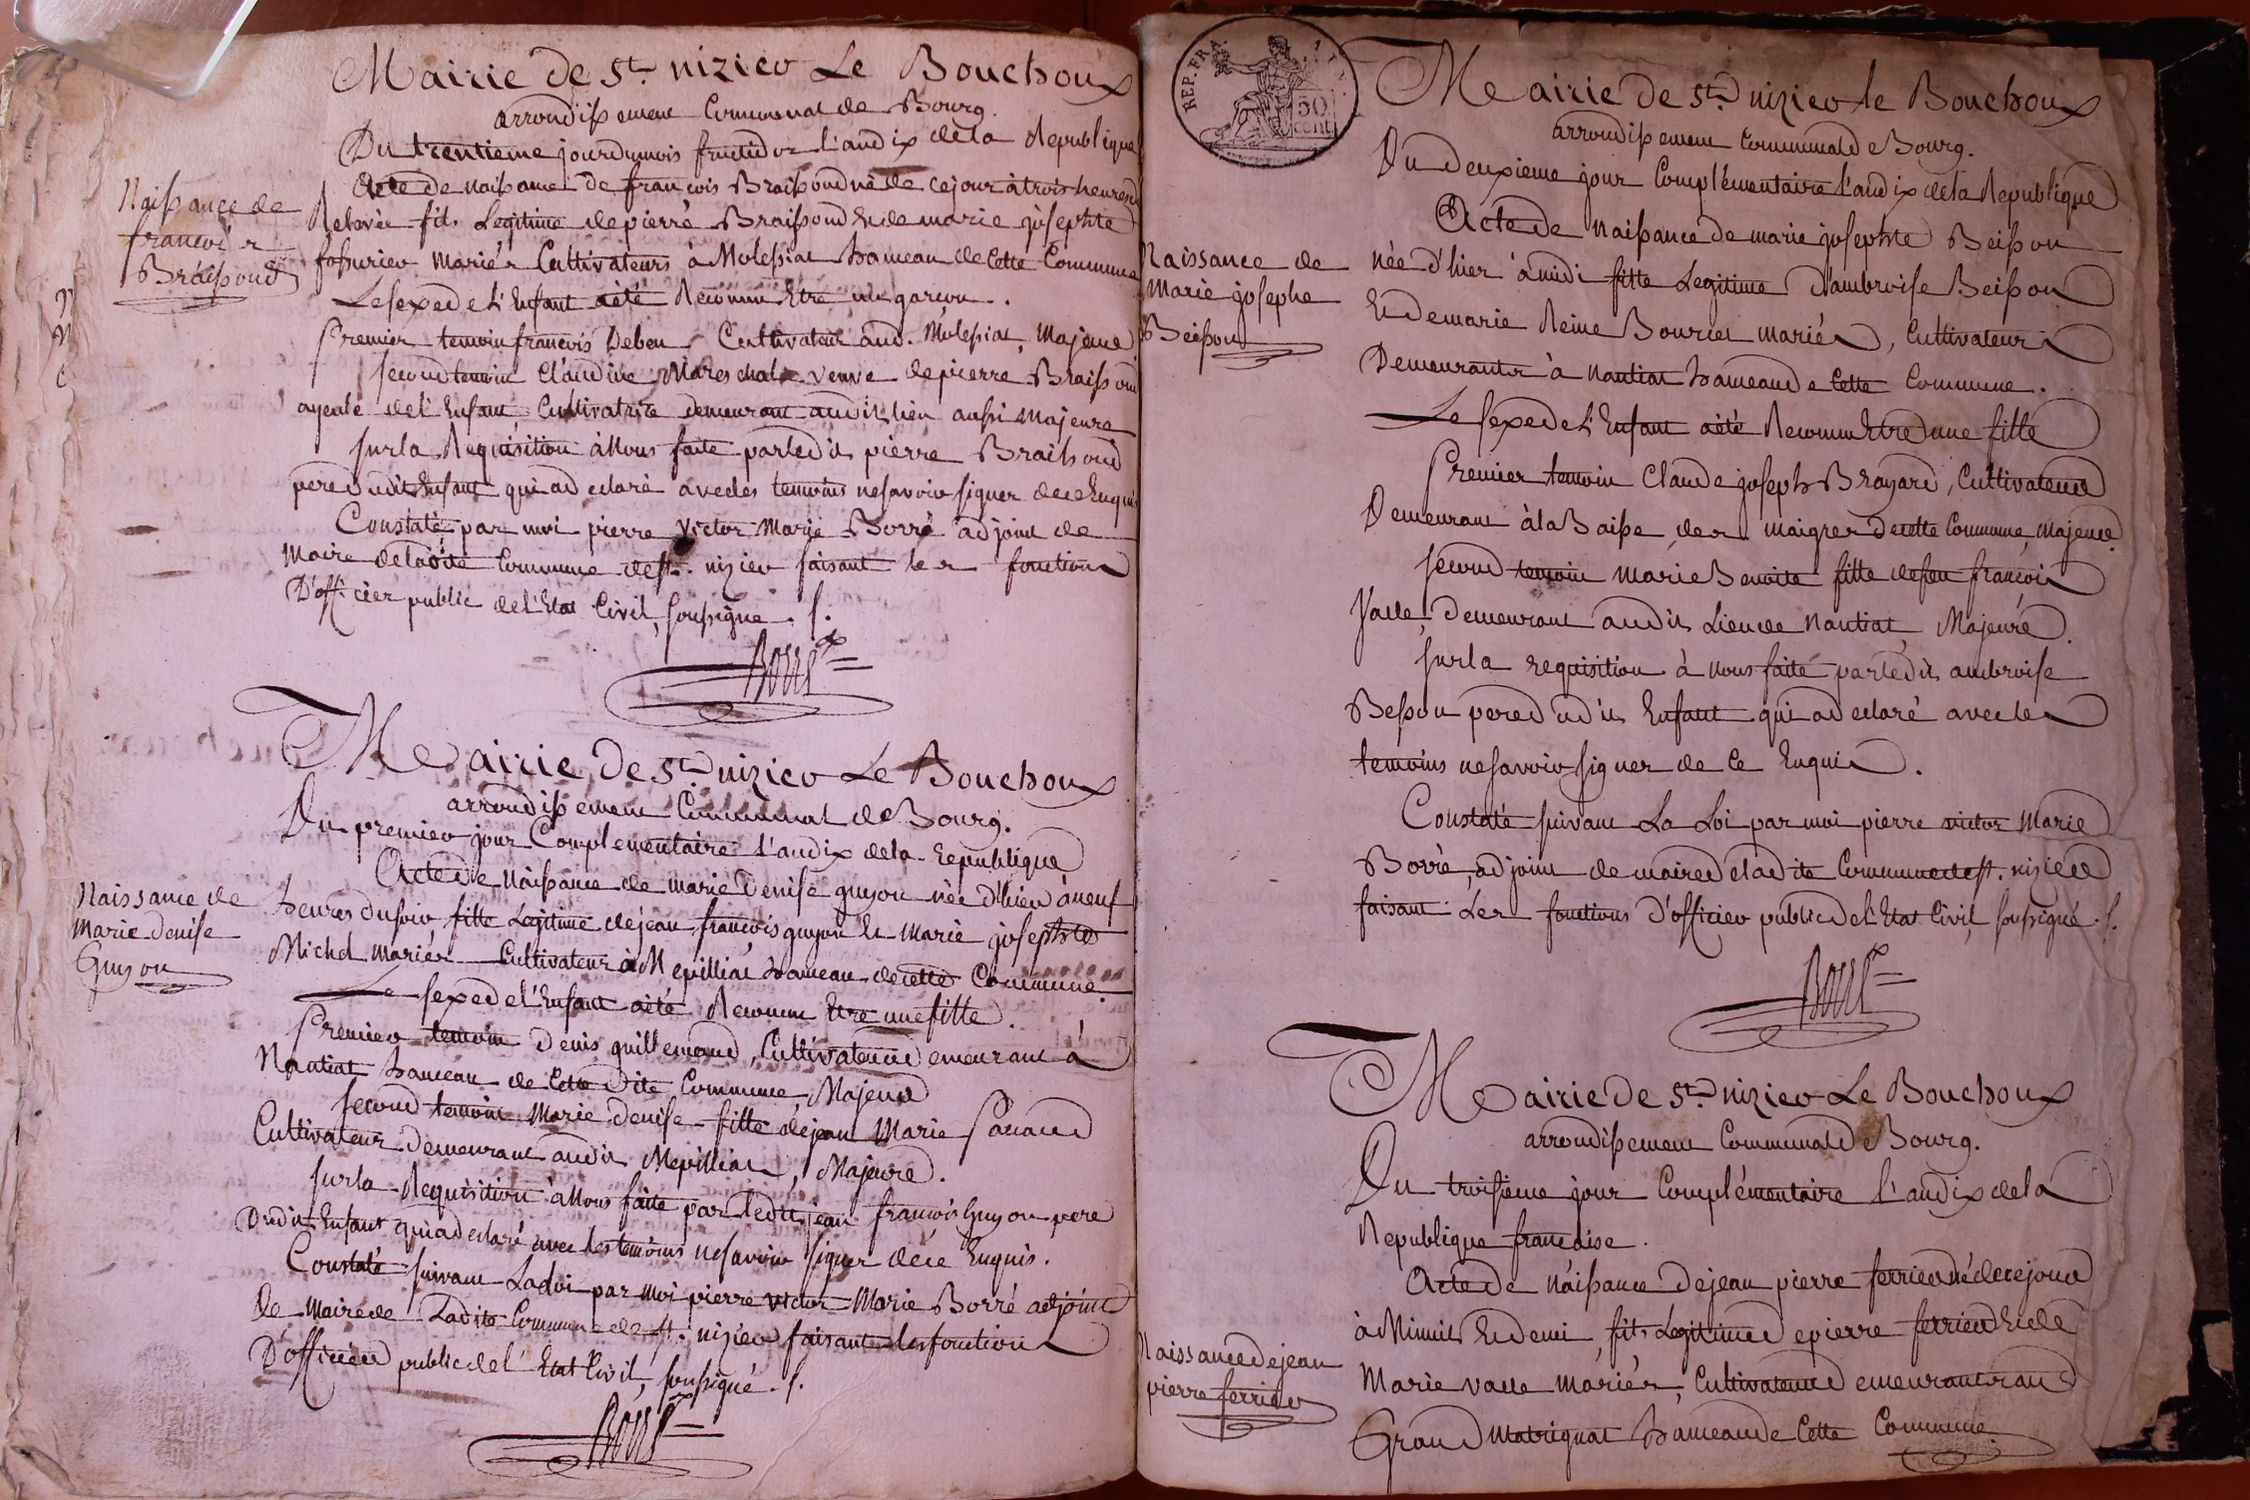 Mairie de St. nizier Le Bouchoux
arrondissement Communal de Bourg.
Du trentieme jour du mois fructidor l'an dix de la Republique
Acte de naissance de françois Braissoud né de ce jour à trois heures
Naissance de
françois
Braissoud
fils Legitime de pierre Braissoud Et de marie josephte
mariés Cultivateurs à Molessiat hameau de Cette Commune
Le sexe de L'Enfant a été Reconnu Etre un garcon.
Premier temoin françois Cultivateur aud. Molessiat, Majeur
second temoin Claudine Mareschal veuve de pierre Braissoud
ayeule de l'Enfant, Cultivatrice demeurant audit lieu aussi Majeure
sur la Requisition à Nous faite par ledit pierre Braissoud
pere dudit Enfant qui a declaré avec les temoins ne savoir signer de ce Enquis
Constaté par moi pierre victor Marie Borré adjoint de
Maire de ladite Commune de st. nizier faisant les fonctions
D'officier public de l'Etat Civil, soussigné.
Borré
Mairie de St. nizier Le Bouchoux
arrondissement Communal de Bourg.
Du premier jour Complementaire l'an dix de la Republique
Acte de Naissance de marie denise guyon née d'hier à neuf
Naissance de
Marie denise
Guyon
heures du soir, fille Legitime de jean françois guyon Et Marie josephte
Michel mariés Cultivateurs à Mepilliat hameau de cette Commune.
Le sexe de l'Enfant a été Reconnu Etre une fille.
Premier temoin denis guillemaud, Cultivateur demeurant à
Nantiat hameau de Cette dite Commune, Majeur
second temoin Marie denise fille de jean Marie
Cultivateur demeurant audit Mepilliat, Majeure.
sur la Requisition à Nous faite par ledit jean françois Guyon pere
Dudit Enfant qui a declaré avec les temoins ne savoir signer de ce Enquis.
Constaté suivant La Loi par moi pierre victor Marie Borré adjoint
De Maire de Ladite Commune de st. nizier faisant les fonctions
D'officier public de l'Etat Civil, soussigné.
Borré
REP. FRA.
50
cent
Mairie de St. nizier le Bouchoux
arrondissement Communal de Bourg.
Du deuxieme jour Complémentaire l'an dix de la Republique
Acte de Naissance de marie josephte Beisson
Naissance de
Marie josephe
Beisson
née d'hier à midi fille Legitime d'ambroise Beisson
Et de marie Reine Bourcet mariés, Cultivateurs
Demeurants à Nantiat hameau de Cette Commune.
Le sexe de L'Enfant a été Reconnu Etre d'une fille
Premier temoin Claude joseph Brayard, Cultivateur
Demeurant à la Baisse des maigres de cette Commune, Majeur.
second temoin Marie Benoite fille de feu françois
Valle, demeurant audit Lieu de Nantiat, Majeure.
sur la requisition à nous faite par ledit ambroise
Besson pere dudit Enfant qui a declaré avec les
temoins ne savoir signer de Ce Enquis.
Constaté suivant La Loi par moi pierre victor Marie
Borré, adjoint de maire de ladite Commune de st. nizier
faisant Les fonctions d'officier public de l'Etat Civil, soussigné.
Borré
Mairie de St. nizier Le Bouchoux
arrondissement Communal de Bourg.
Du troisieme jour Complémentaire l'an dix de la
Republique française.
Acte de Naissance de jean pierre ferrier né de ce jour
à Minuit Et demi, fils Legitime de pierre ferrier Et de
Naissance de jean
pierre ferrier
Marie valle Mariés, Cultivateurs demeurants au
Grand Matrignat hameau de Cette Commune.